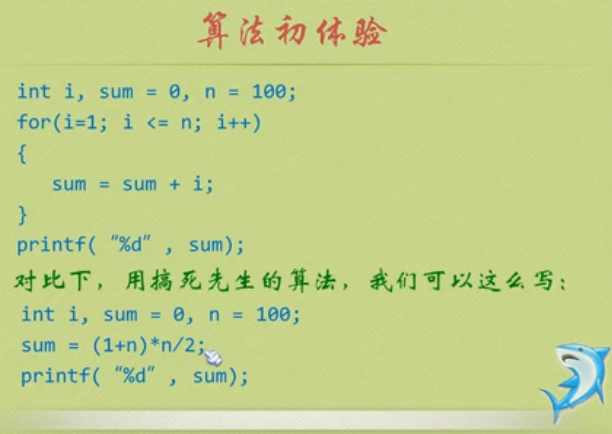 算法初体验
int i, sum = 0, n = 100;
for(i=1; i <= n; i++)
{
sum = sum + i;
}
printf( “%d” , sum);
对比下，用搞死先生的算法，我们可以这么写：
int i, sum = 0, n = 100;
sum = (1+n)*n/2;
printf( “%d” , sum);